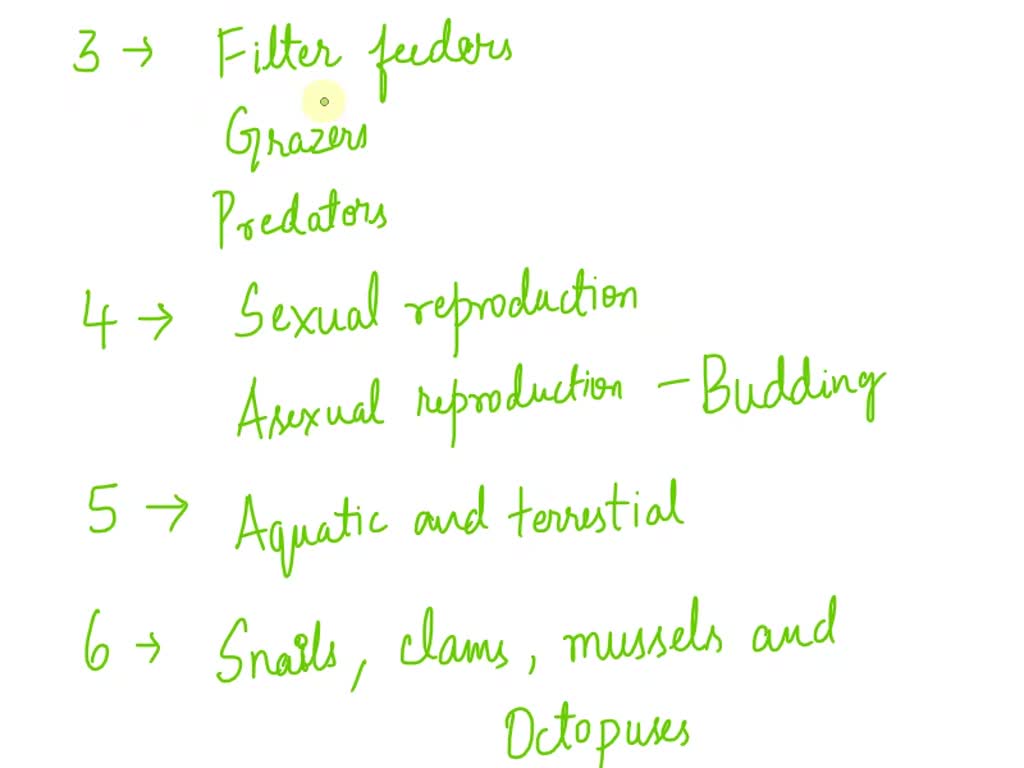 3 → Filter feeders
Grazers
Predators
4 → Sexual reproduction
Asexual reproduction - Budding
5 → Aquatic and terrestial
6 → Snails, clams, mussels and
Octopuses